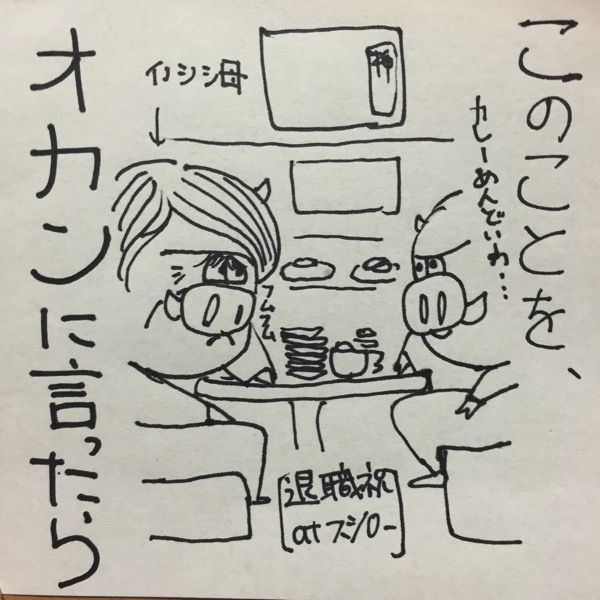 このことを、
めんどいわ…
神
イノシシ母
フムフム
オカンに言ったら
退職祝
at スシロー